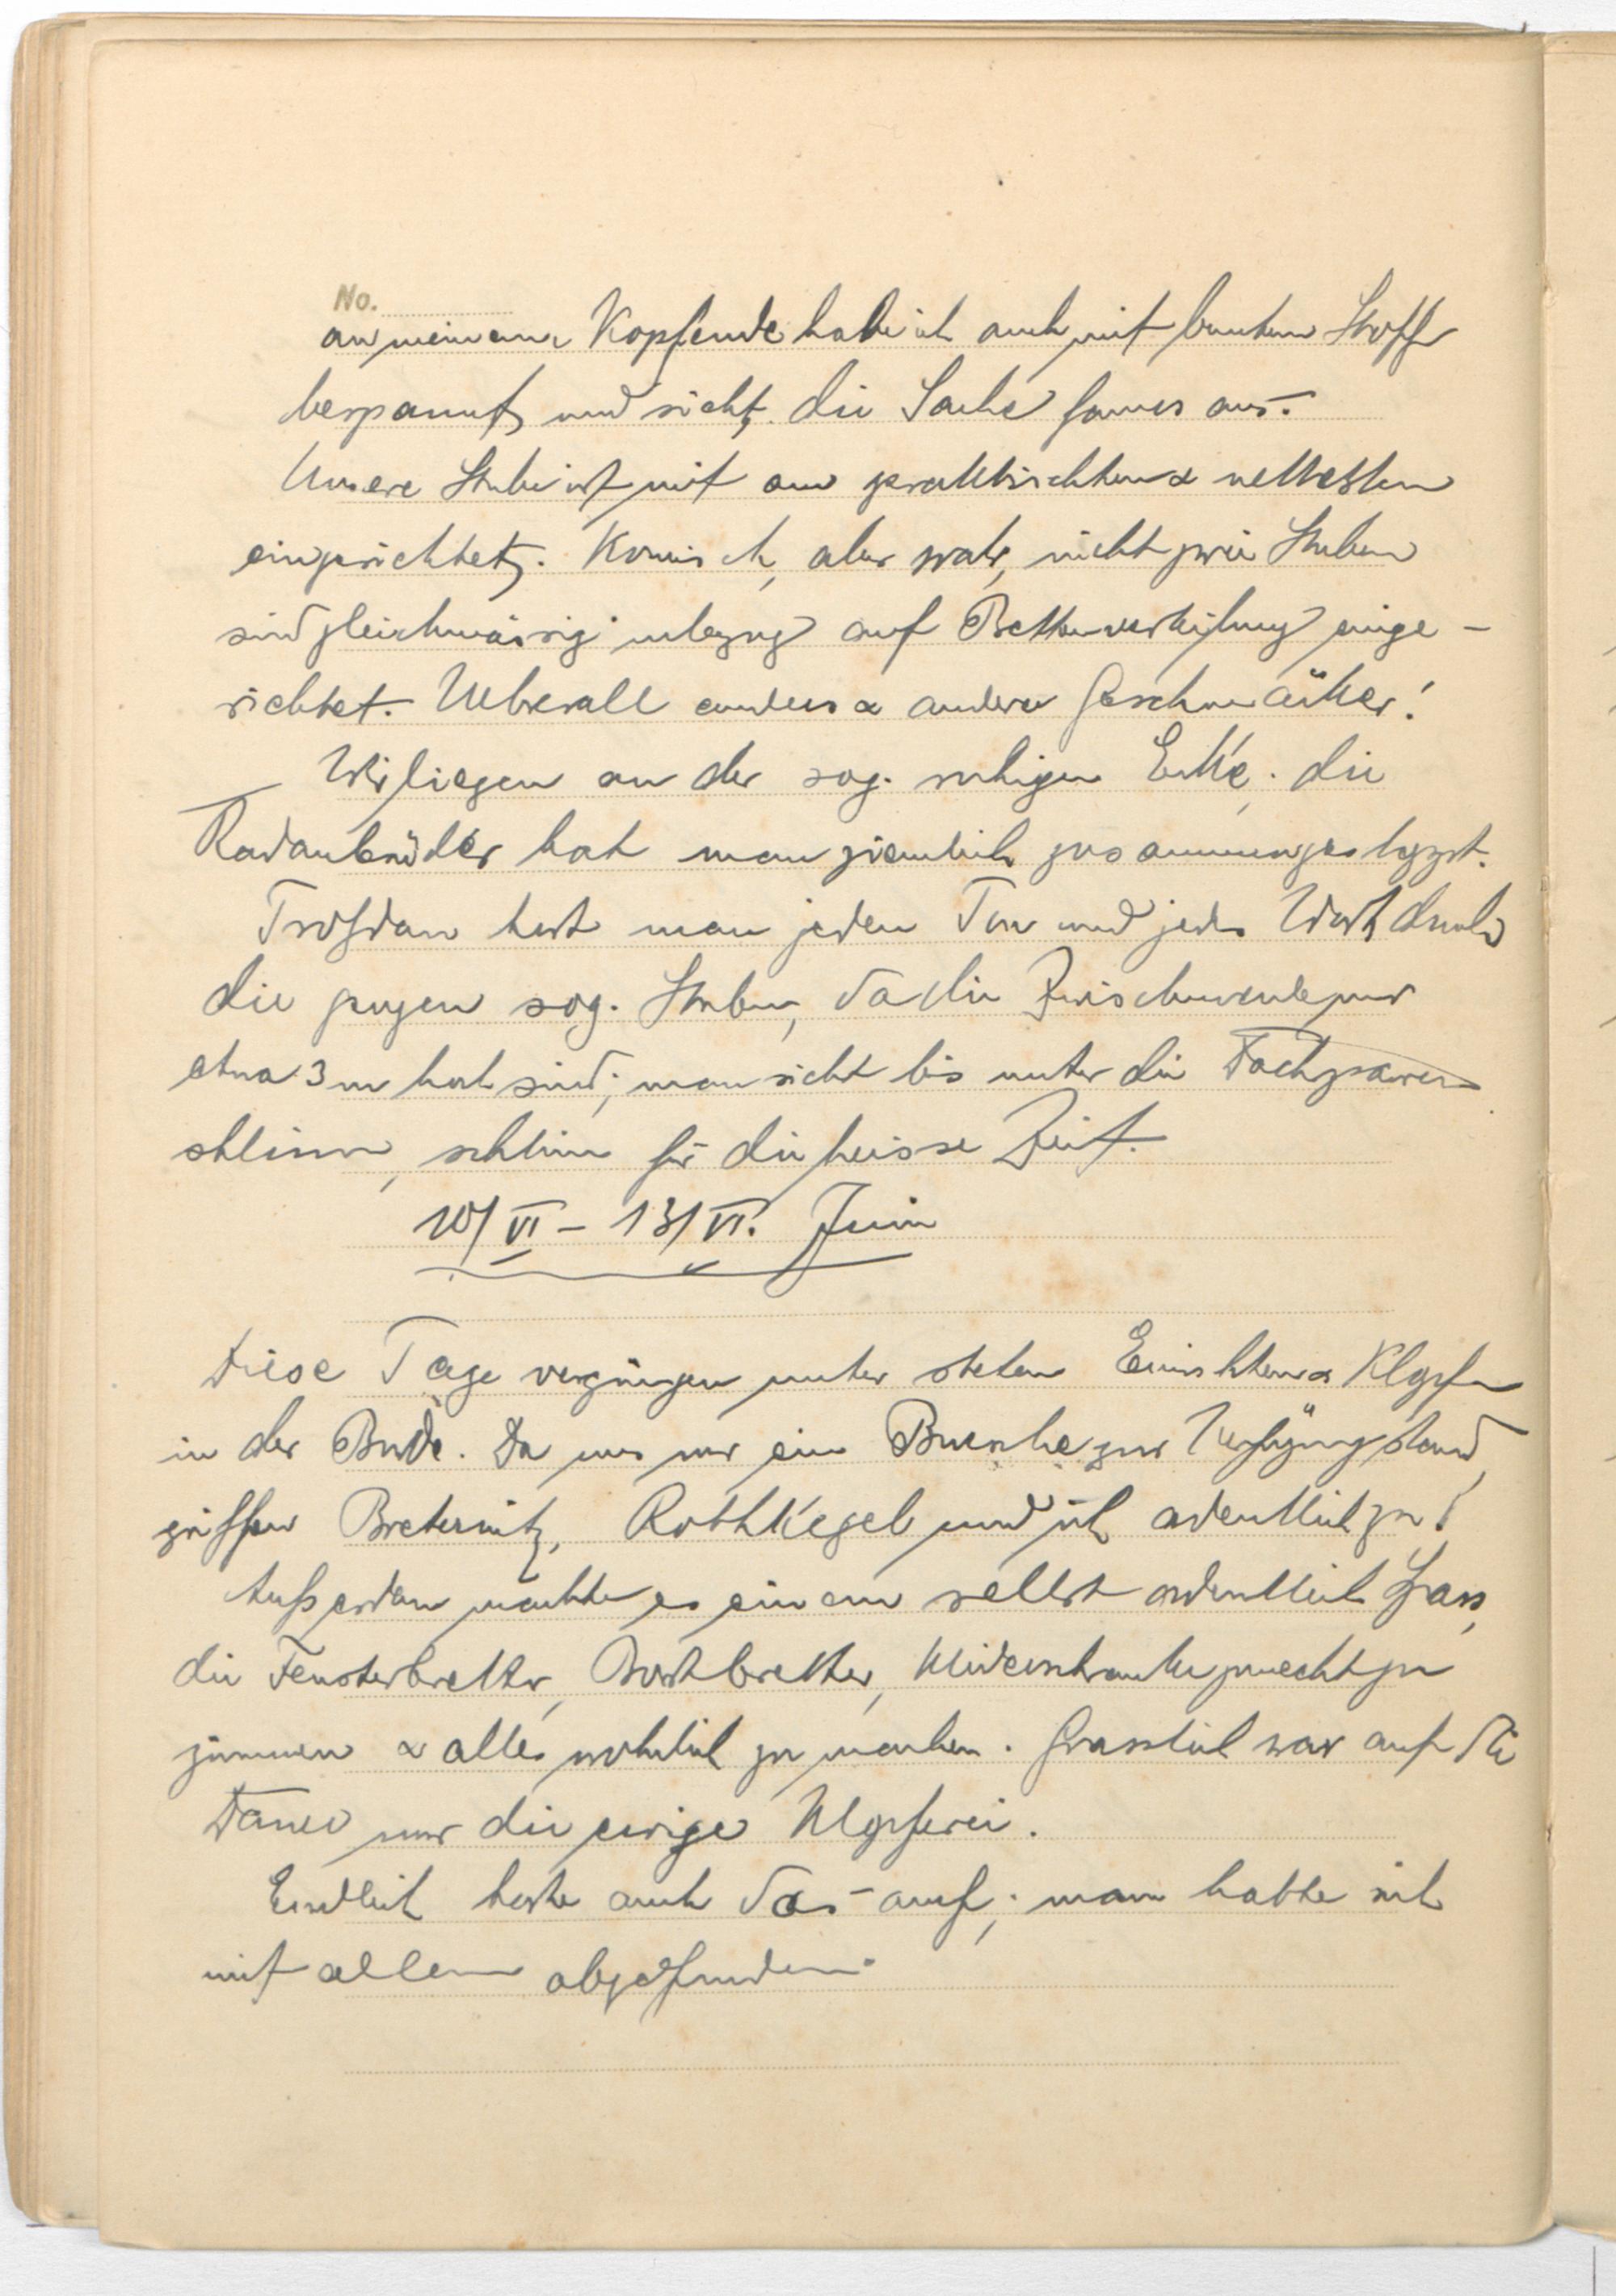 No.
an meinem Kopfende habe ich auch mit buntem Stoff
bespannt, und sieht die Sache famos aus.
Unsere Stube ist mit am praktischsten & nettesten
eingerichtet. Komisch, aber wahr, nicht zwei Stuben
sind gleichmässig inbezug auf Bettenverteilung einge-
richtet. Ueberall anders & andere Geschmäcker!
Wir liegen an der sog. ruhigen Ecke; die
Radaubrüder hat man ziemlich zusammengestopft.
Trotzdem hört man jeden Ton und jedes Wort durch
die ganzen sog. Stuben, da die Zwischenwände nur
etwa 3 m hoch sind; man sieht bis unter die Dachsparren
schlimm, schlimm für die heisse Zeit.
10/VI – 13/VI. Juni
Diese Tage vergingen unter steten Einrichten & Klopfen
in der Bude. Da uns nur ein Bursche zur Verfügung stand,
griffen Breternitz, Rothkegel und ich ordentlich zu!
Außerdem machte es einem selbst ordentlich Spass,
die Fensterbretter, Bortbretter, Kleiderschränke zurecht zu
zimmern & alles wohnlich zu machen. Grasslich war auf die
Dauer nur die ewige Klopferei.
Endlich hörte auch das auf; man hatte sich
mit allem abgefunden.